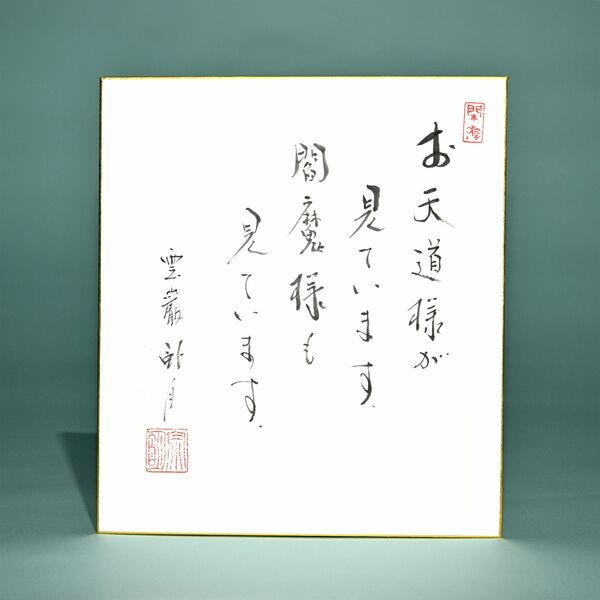 お天道様が
見ています.
閻魔様も
見ています.
雲巌 卧月